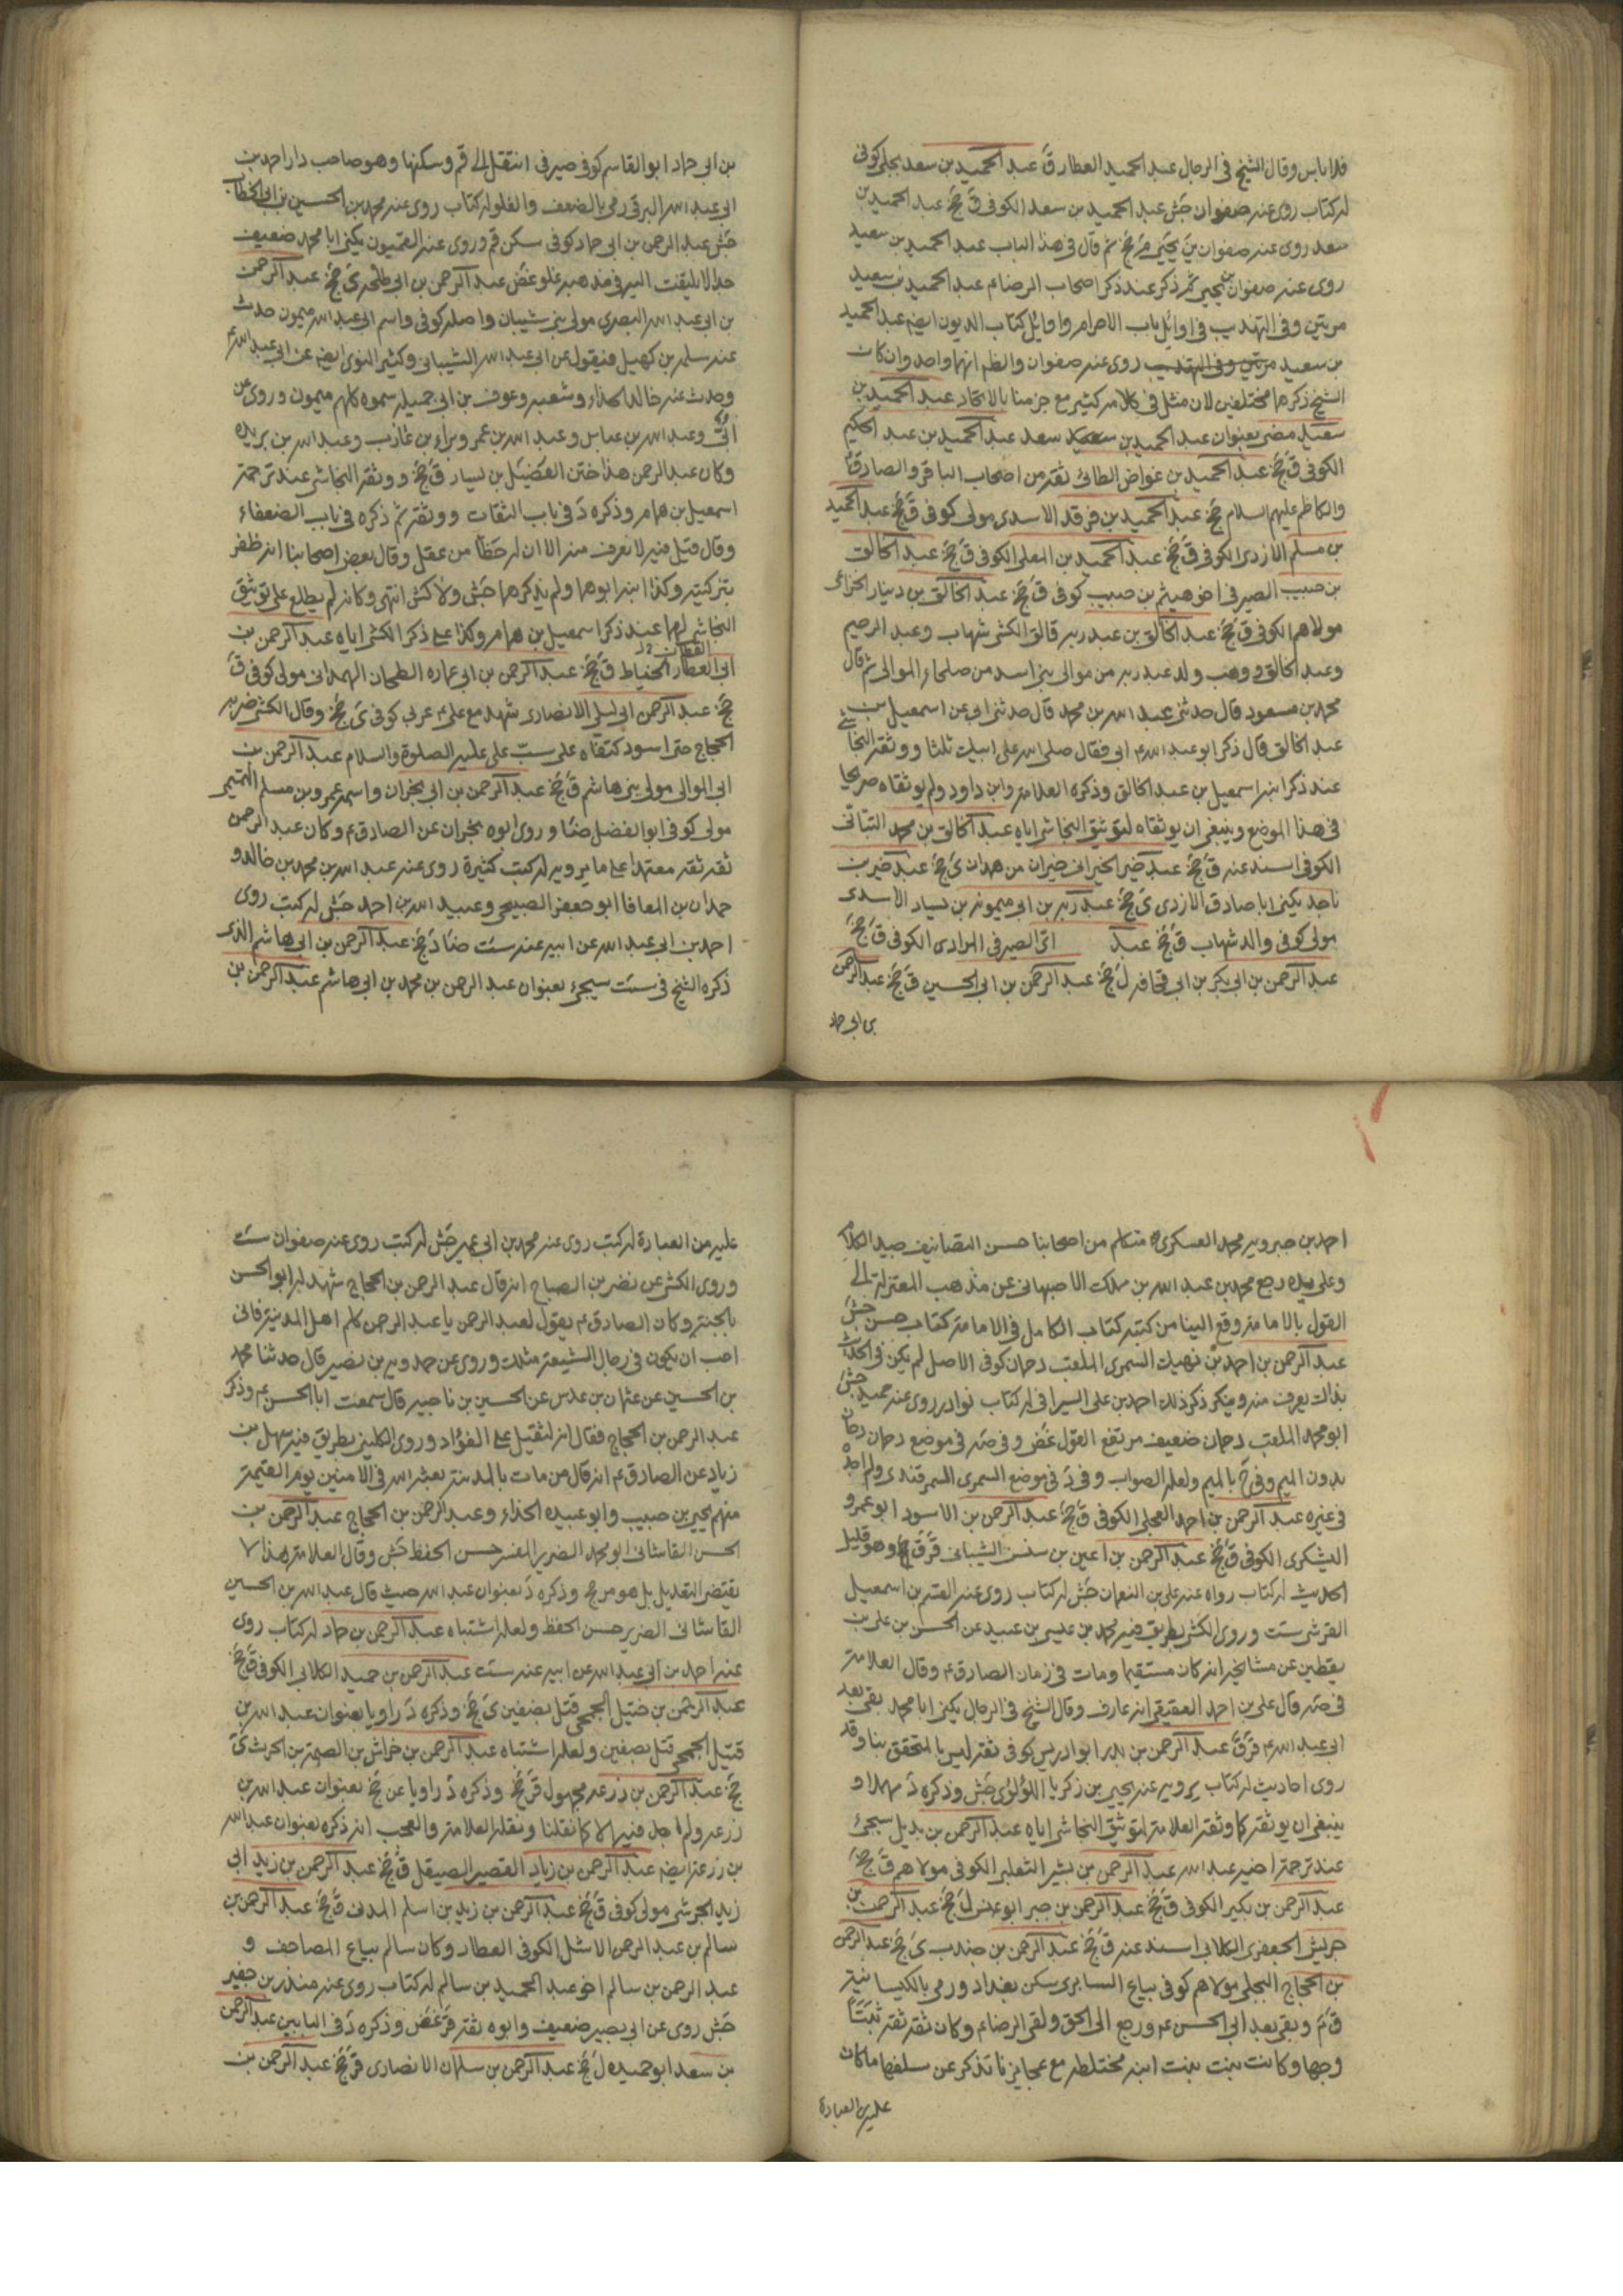 فلا باس وقال الشيخ في الرجال عبد الحميد العطار ق عبد الحميد بن سعد بجلي كوفي
له كتاب روى عنه صفوان جش عبد الحميد بن سعد الكوفي ق جخ عبد الحميد بن
سعد روى عنه صفوان بن يحيى م جخ ثم قال في هذا الباب عبد الحميد بن سعيد
روى عنه صفوان بن يحيى ثم ذكر عند ذكر اصحاب الرضا ع عبد الحميد بن سعيد
مرتين وفي التهذيب في اوائل باب الاحرام واوائل كتاب الديون ايضا عبد الحميد
بن سعيد مرتين وفي التهذيب روى عنه صفوان والظ انهما واحد وان كان
الشيخ ذكرهما مختلفين لان مثل في كلامه كثير مع جزمنا بالاتحاد عبد الحميد بن
سعيد مضى بعنوان عبد الحميد بن سعد عبد الحميد بن عبد الحكيم
الكوفي ق جخ عبد الحميد بن عواض الطائي ثقة من اصحاب الباقر والصادق
والكاظم عليهم السلام جخ عبد الحميد بن فرقد الاسدي مولى كوفي ق جخ عبد الحميد
بن مسلم الازدي الكوفي ق جخ عبد الحميد بن المعلى الكوفي ق جخ عبد الخالق
بن حبيب الصيرفي اخو هيثم بن حبيب كوفي ق جخ عبد الخالق بن دينار الخزاعي
مولاهم الكوفي ق جخ عبد الخالق بن عبد ربه قال الكشي شهاب وعبد الرحيم
وعبد الخالق ووهب ولد عبد ربه من موالى بني اسد من صلحاء الموالى ثم قال
محمد بن مسعود قال حدثني عبد الله بن محمد قال حدثني ابي عن اسمعيل بن
عبد الخالق قال ذكر ابو عبد الله ع ابي فقال صلى الله على ابيك ثلثا ووثقه النجاشي
عند ذكر ابنه اسمعيل بن عبد الخالق وذكره العلامة وابن داود ولم يوثقاه صريحا
في هذا الموضع وينبغي ان يوثقاه لتوثيق النجاشي اياه عبد الخالق بن محمد البناني
الكوفي اسند عنه ق جخ عبد خير الخيراني خيران من همدان ي جخ عبد خير بن
ناجد يكنى ابا صادق الازدي ي جخ عبد ربه بن ابي ميمونه بن يسار الاسدي
مولى كوفي والد شهاب ق جخ عبد اتى الصيرفي المرادي الكوفي ق جخ
عبد الرحمن بن ابي بكر بن ابي قحافه ل جخ عبد الرحمن بن ابي الحسين ق جخ عبد الرحمن
بن ابي حماد
بن ابي حماد ابو القاسم كوفي صيرفي انتقل الى قم وسكنها وهو صاحب دار احمد بن
ابي عبد الله البرقي رمي بالضعف والغلو له كتاب روى عنه محمد بن الحسين بن ابي الخطاب
جش عبد الرحمن بن ابي حماد كوفي سكن قم وروى عنه القميون يكنى ابا محمد ضعيف
جدا لا يلتفت اليه في مذهبه غلو غض عبد الرحمن بن ابي طلحه ي جخ عبد الرحمن
بن ابي عبد الله البصري مولى بني شيبان واصله كوفي واسم ابي عبد الله ميمون حدث
عنه سلمة بن كهيل فيقول عن ابي عبد الله الشيباني وكثير النوى ايضا عن ابي عبد الله
وحدث عنه خالد الحذاء وشعبه وعوف بن ابي جميله سموه كلهم ميمون وروى عن
وعبد الله بن عباس وعبد الله بن عمر وبراء بن عازب وعبد الله بن بريده
وكان عبد الرحمن هذا ختن الفضيل بن يسار ق جخ ووثقه النجاشي عند ترجمة
اسمعيل بن همام وذكره د في باب الثقات ووثقه ثم ذكره في باب الضعفاء
وقال قيل فيه لا نعرف منه الا ان له حظا من عقل وقال بعض اصحابنا انه ظفر
بتزكيته وكذا ابنه ابوهما ولم يذكرهما جش ولا كش انتهى وكانه لم يطلع على توثيق
النجاشي لهما عند ذكر اسمعيل بن همام وكذا على ذكر الكشي اياه عبد الرحمن بن
ابي العطار الخياط ق جخ عبد الرحمن بن ابي عماره الطحان الهمداني مولى كوفي ق
جخ عبد الرحمن ابي ليلى الانصاري شهد مع علي ع عربي كوفي ي جخ وقال الكشي ضربه
الحجاج حتى اسود كتفاه على سب علي عليه الصلوة والسلام عبد الرحمن بن
ابي الموالي مولى بني هاشم ق جخ عبد الرحمن بن ابي نجران واسمه عمرو بن مسلم التميمي
مولى كوفي ابو الفضل ضا وروى ابوه نجران عن الصادق ع وكان عبد الرحمن
ثقة ثقة معتمدا على ما يرويه له كتب كثيرة روى عنه عبد الله بن محمد بن خالد و
حمدان بن المعافا ابو جعفر الصبيحي وعبيد الله بن احمد جش له كتب روى
احمد بن ابي عبد الله عن ابيه عنه ست ضا د جخ عبد الرحمن بن ابي هاشم الذي
ذكره الشيخ في ست سيجئ بعنوان عبد الرحمن بن محمد بن ابي هاشم عبد الرحمن بن
احمد بن جبرويه محمد العسكري متكلم من اصحابنا حسن التصانيف جيد الكلام
وعلى يده رجع محمد بن عبد الله بن مملك الاصبهاني عن مذهب المعتزلة الى
القول بالامامة وقع الينا من كتبه كتاب الكامل في الامامة كتاب حسن جش
عبد الرحمن بن احمد بن نهيك السمري الملقب دحمان كوفي الاصل لم يكن في الحديث
بذاك يعرف منه وينكر ذكر ذلك احمد بن علي السيرافي له كتاب نوادر روى عنه حميد جش
ابو محمد الملقب دحمان ضعيف مرتفع القول غض وفي صه في موضع دحمان دحان
بدون الميم وفي ح بالميم ولعله الصواب وفي د في موضع السمري السمرقندي ولم اجده
في غيره عبد الرحمن بن احمد العجلي الكوفي ق جخ عبد الرحمن بن الاسود ابو عمرو
اليشكري الكوفي ق جخ عبد الرحمن بن اعين بن سنسن الشيباني قر ق جخ وهو قليل
الحديث له كتاب رواه عنه علي بن النعمان جش له كتاب روى عنه القسم بن اسمعيل
القرشي ست وروى الكشي بطريق فيه محمد بن عيسى بن عبيد عن الحسن بن علي بن
يقطين عن مشايخه انه كان مستقيما ومات في زمان الصادق ع وقال العلامة
في صه قال علي بن احمد العقيقي انه عارف وقال الشيخ في الرجال يكنى ابا محمد بقى بعد
ابي عبد الله ع قر ق عبد الرحمن بن بدر ابو ادريس كوفي ثقة ليس بالمتحقق بنا وقد
روى احاديث له كتاب يرويه عنه يحيى بن زكريا اللؤلؤي جش وذكره د مهملا و
ينبغي ان يوثقه كما وثقه العلامة لتوثيق النجاشي اياه عبد الرحمن بن بديل سيجئ
عند ترجمة اخيه عبد الله عبد الرحمن بن بشير التغلبي الكوفي مولاهم ق جخ
عبد الرحمن بن بكير الكوفي ق جخ عبد الرحمن بن جبر ابو عبس ل جخ عبد الرحمن بن
حريش الجعفري الكلابي اسند عنه ق جخ عبد الرحمن بن جندب ي جخ عبد الرحمن
بن الحجاج البجلي مولاهم كوفي بياع السابري سكن بغداد ورمي بالكيسانية
ق م وبقى بعد ابي الحسن ع ورجع الى الحق ولقى الرضا ع وكان ثقة ثقة ثبتا
وجها وكانت بنت بنت ابنه مختلطه مع عجايزنا تذكر عن سلفها ما كان
عليه من العبادة
عليه من العبادة له كتب روى عنه محمد بن ابي عمير جش له كتب روى عنه صفوان ست
وروى الكشي عن نصر بن الصباح انه قال عبد الرحمن بن الحجاج شهد له ابو الحسن
بالجنة وكان الصادق ع يقول لعبد الرحمن يا عبد الرحمن كلم اهل المدينة فاني
احب ان يكون في رجال الشيعة مثلك وروى عن حمدويه بن نصير قال حدثنا محمد
بن الحسين عن عثمان بن عدس عن الحسين بن ناجيه قال سمعت ابا الحسن ع وذكر
عبد الرحمن بن الحجاج فقال انه لثقيل على الفؤاد وروى الكليني بطريق فيه سهل بن
زياد عن الصادق ع انه قال من مات بالمدينة بعثه الله في الامنين يوم القيمة
منهم يحيى بن حبيب وابو عبيده الحذاء وعبد الرحمن بن الحجاج عبد الرحمن بن
الحسن القاساني ابو محمد الضرير المفسر حسن الحفظ جش وقال العلامة هذا لا
يقتضي التعديل بل هو مرجح وذكره د بعنوان عبد الله حيث قال عبد الله بن الحسين
القاساني الضرير حسن الحفظ ولعله اشتباه عبد الرحمن بن حماد له كتاب روى
عنه احمد بن ابي عبد الله عن ابيه عنه ست عبد الرحمن بن حميد الكلابي الكوفي ق جخ
عبد الرحمن بن خنبل الجمحي قتل بصفين ي جخ وذكره د راويا بعنوان عبد الله بن
قتيل الجمحي قتل بصفين ولعله اشتباه عبد الرحمن بن خراش بن الصمة بن الحرث ي
جخ عبد الرحمن بن زرعه مجهول قر جخ وذكره د راويا عن جخ بعنوان عبد الله بن
زرعه ولم اجد فيها الا كما نقلنا ونقله العلامة والعجب انه ذكره بعنوان عبد الله
بن زرعة ايضا عبد الرحمن بن زياد القصير الصيقل ق جخ عبد الرحمن بن زيد ابي
زيد الجرشي مولى كوفي ق جخ عبد الرحمن بن زيد بن اسلم المدني ق جخ عبد الرحمن بن
سالم بن عبد الرحمن الاشل الكوفي العطار وكان سالم بياع المصاحف و
عبد الرحمن بن سالم اخو عبد الحميد بن سالم له كتاب روى عنه منذر بن جفير
جش روى عن ابي بصير ضعيف وابوه ثقة قر غض وذكره د في البابين عبد الرحمن
بن سعد ابو حميده ل جخ عبد الرحمن بن سلمان الانصاري قر جخ عبد الرحمن بن